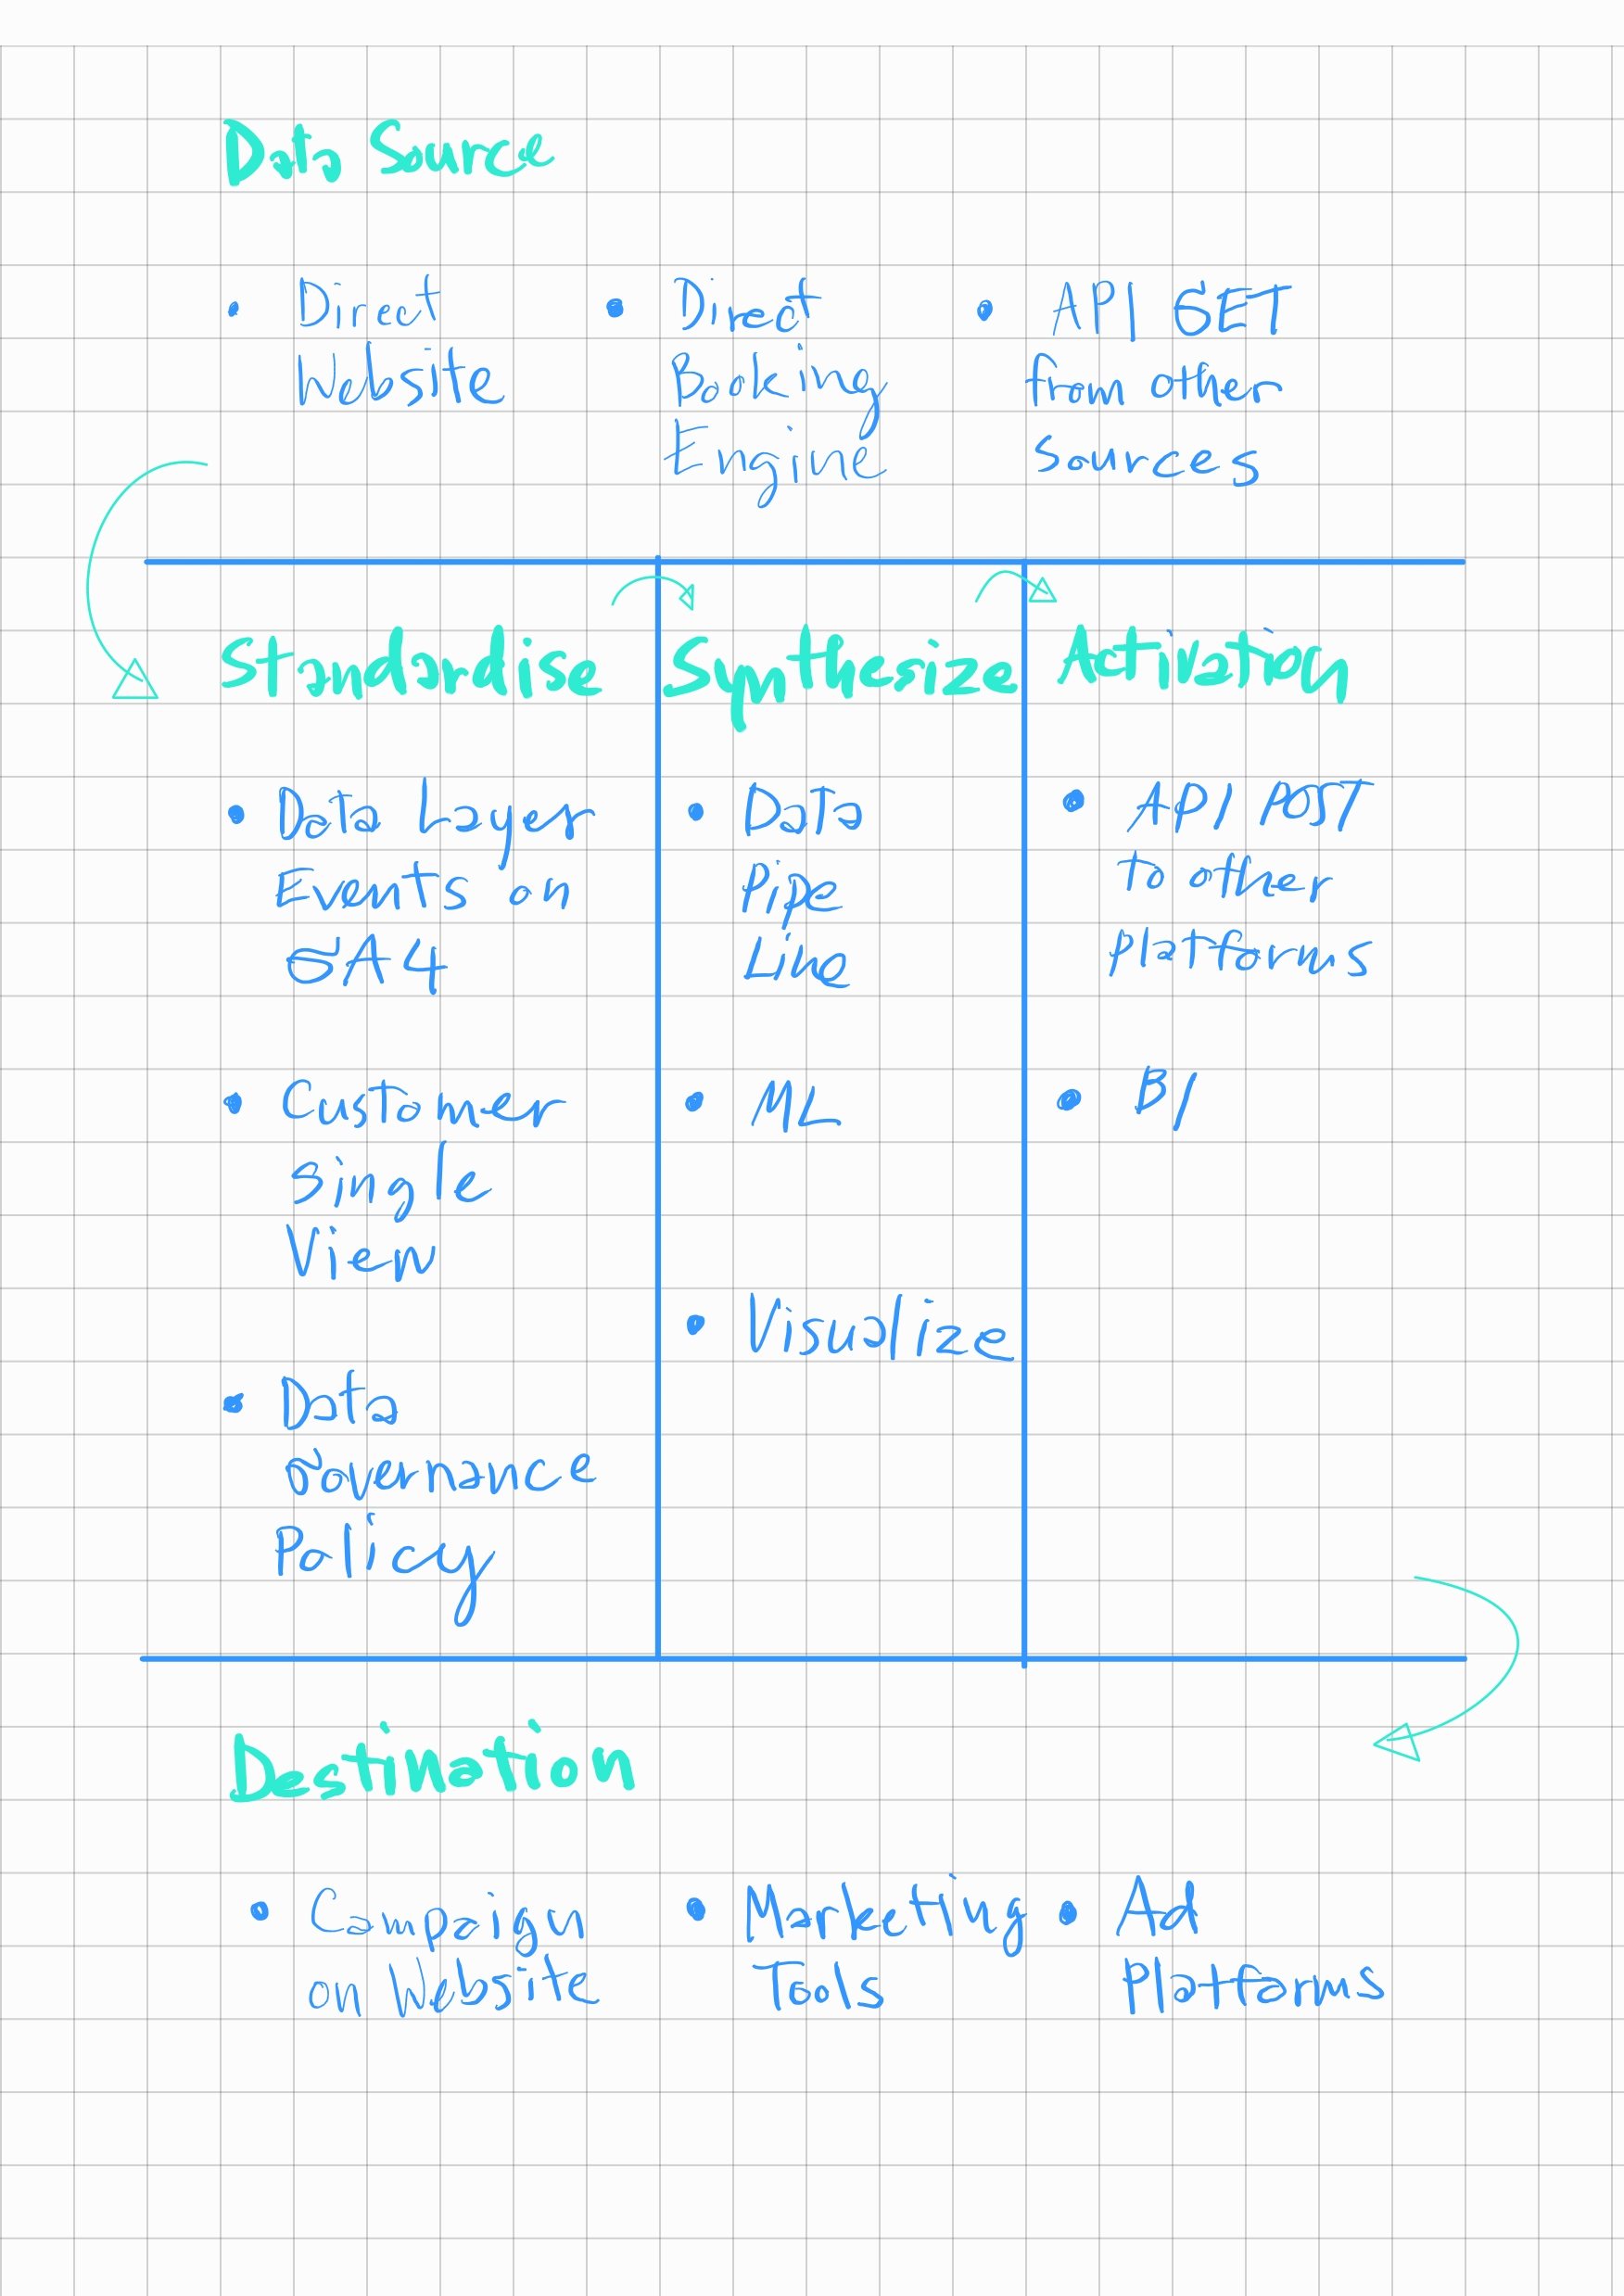 Data Source
• Direct
Website
• Direct
Booking
Engine
• API GET
from other
sources
Standardise
• Data Layer
Events on
GA4
• Customer
Single
View
• Data
Governance
Policy
Synthesize
• Data
Pipe
Line
• ML
• Visualize
Activation
• API POST
to other
platforms
• BI
Destination
• Campaign
on Website
• Marketing
Tools
• Ad
Platforms